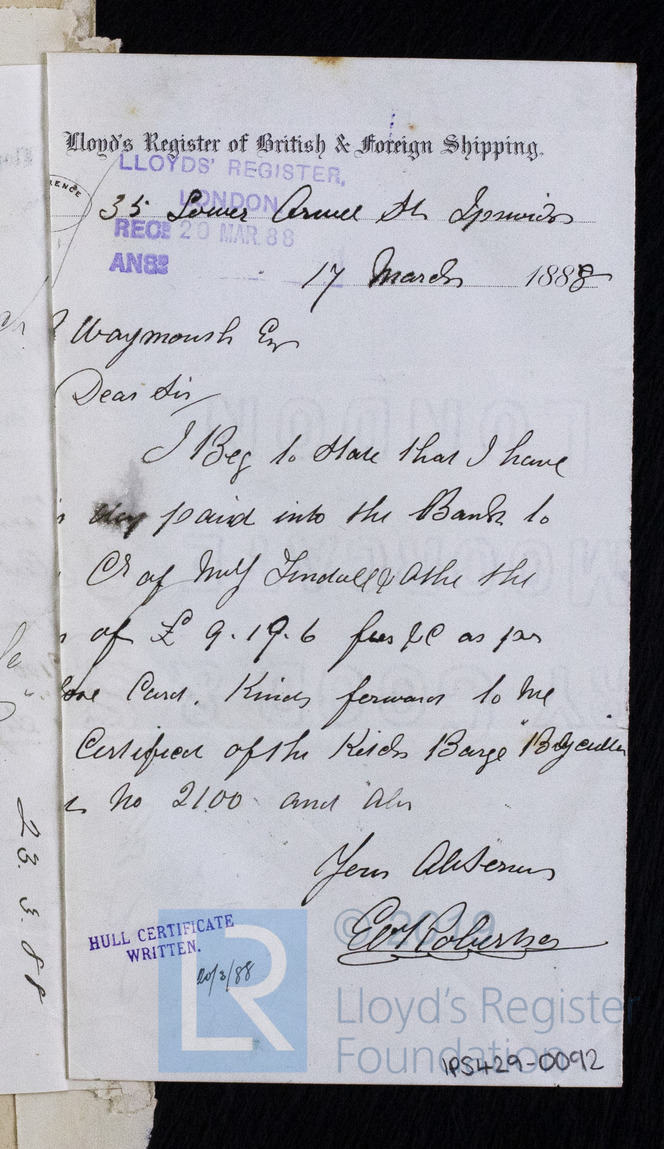 Lloyd's Register of British & Foreign Shipping.
LLOYDS' REGISTER,
LONDON
RECD 20 MAR. 88
ANSD
35 Lower Orwell St Ipswich
17 March 1888
Waymouth Esq
Dear Sir
I Beg to state that I have
day paid into the Bank to
Cr of Mess Tindall & Othe the
of £ 9.19.6 fees &C as per
Card. Kindly forward to me
Certificate of the Ketch Barge "
No 2100 and
Your Obt Servan
Robertson
HULL CERTIFICATE
WRITTEN.
20/3/88
23.3.88
LR
© 2019
Lloyd's Register
Foundation
IPS429-0092